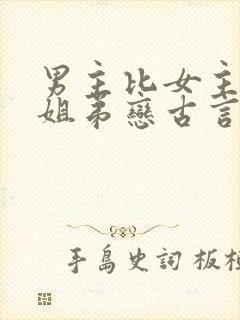 男主比女主
姐弟戀古言
手島史詞 板垣